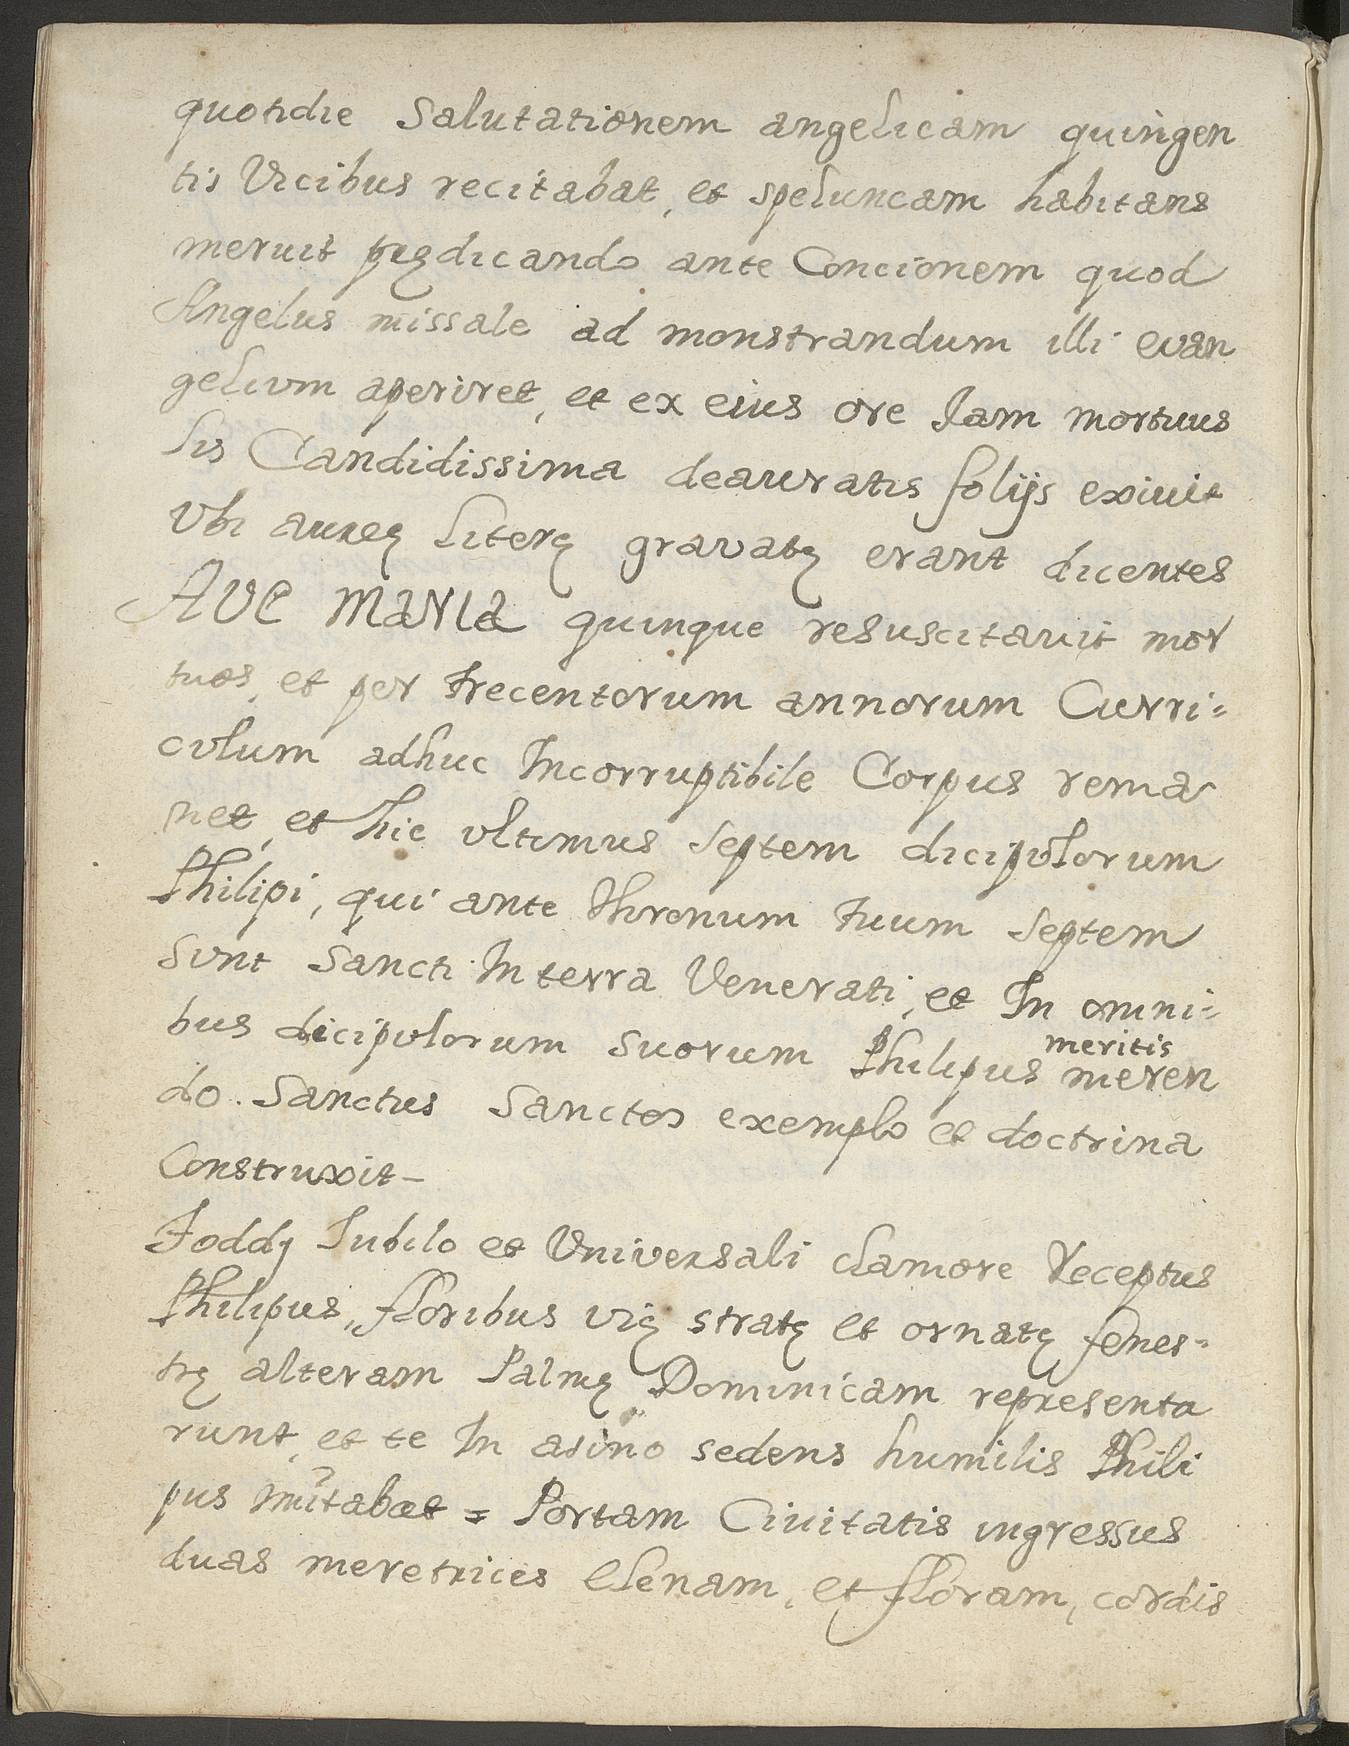 quotidie Salutationem angelicam quingen
tis Vicibus recitabat, et speluncam habitans
meruit prędicando ante Concionem quod
Angelus missale ad monstrandum illi evan
gelium aperiret, et ex eius ore Jam mortuus
lis Candidissima deauratis folijs exiuit
Vbi aureę literę gravatę erant dicentes
AVE MARIA quinque resuscitauit mor
tuos, et per trecentorum annorum Curri=
culum adhuc Incorruptibile Corpus rema
net, et hic vltimus septem dicipvlorum
Philipi, qui ante thronum tuum septem
sunt Sancti In terra Venerati, et In omni=
bus dicipvlorum suorum Philipus meritis meren
do. Sanctus Sanctos exemplo et doctrina
Construxit–
Joddj Iubilo et Vniversali clamore receptus
Philipus, floribus vię stratę et ornatę fenes=
trę alteram Palmę Dominicam representa
runt, et te In asino sedens humilis Phili
pus imitabat = Portam Ciuitatis ingressus
duas meretrices Elenam, et floram, cordis